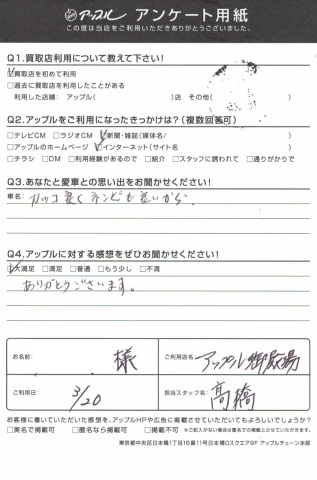 アップル アンケート用紙
この度は当店をご利用いただきありがとうございました。
Q1.買取店利用について教えて下さい!
☑買取店を初めて利用
□過去に買取店を利用したことがある
利用した店舗: アップル( )店 その他( )
Q2.アップルをご利用になったきっかけは?(複数回答可)
□テレビCM □ラジオCM ☑新聞・雑誌(媒体名/ )
□アップルのホームページ ☑インターネット(サイト名 )
□チラシ □DM □利用経験があるので □紹介 □スタッフに誘われて □通りがかりで
Q3.あなたと愛車との思い出をお聞かせください!
車名: カッコ良くネンピも良いから。
Q4.アップルに対する感想をぜひお聞かせください!
☑大満足 □満足 □普通 □もう少し □不満
ありがとうございます。
お名前: 様 ご利用店名: アップル御殿場
ご利用日: 3/20 担当スタッフ名: 高橋
お客様に書いていただいた感想を、アップルHPや広告に掲載させていただいてもよろしいでしょうか?
□実名で掲載可 □匿名なら掲載可 □掲載不可 ※ご記入がない場合は匿名での掲載とさせていただきます。
東京都中央区日本橋1丁目16番11号日本橋Dスクエア9F アップルチェーン本部